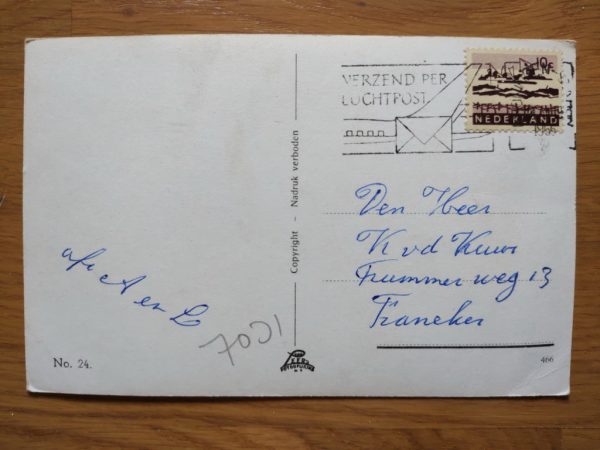 VERZEND PER
LUCHTPOST
10c
NEDERLAND
Copyright - Nadruk verboden
Den Heer
K vd
weg 13
Franeker
afz A en L
No. 24.
466